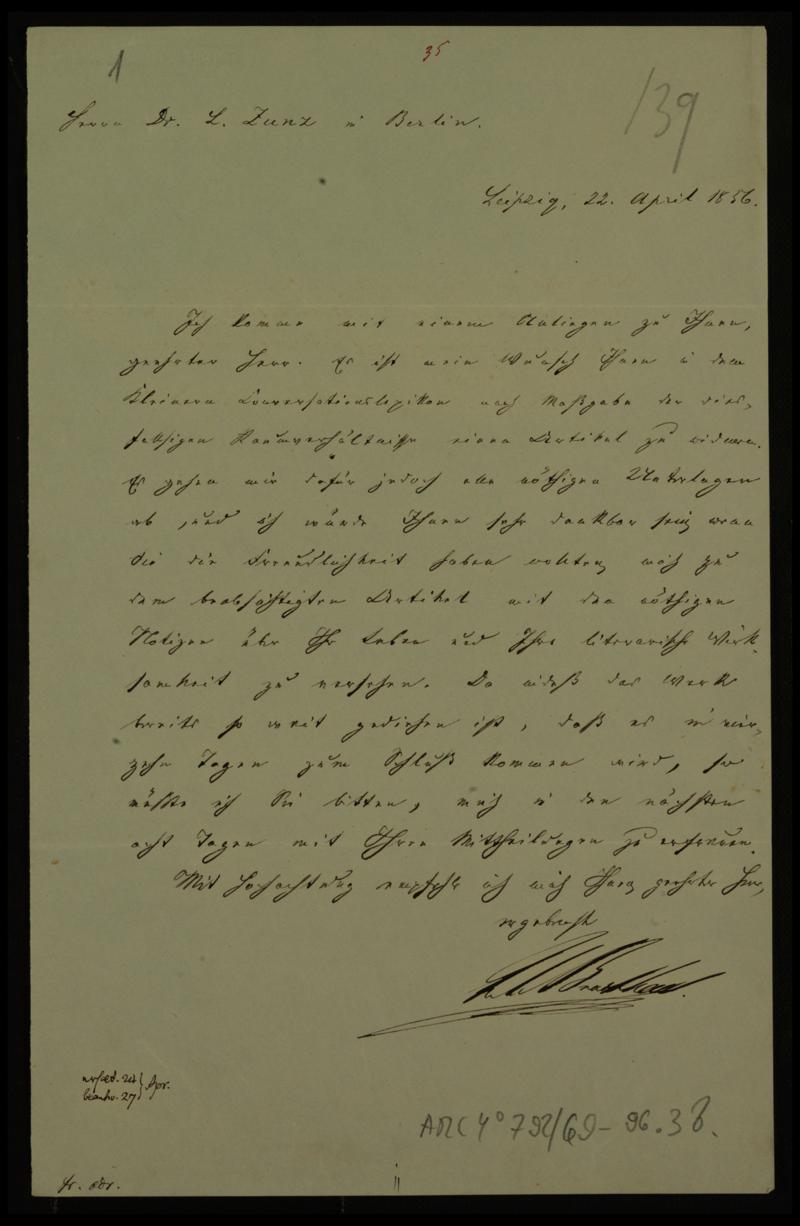 1
35
139
Herrn Dr. L. Zunz in Berlin.
Leipzig, 22. April 1856.
Ich komme mit einem Anliegen zu Ihnen,
geehrter Herr. Es ist mein Wunsch Ihnen in dem
Kleinern Conversationslexikon nach Maßgabe der dies-
fallsigen Raumverhältnisse einen Artikel zu widmen.
Es gehen mir dafür jedoch alle nöthigen Unterlagen
ab, und ich würde Ihnen sehr dankbar sein, wenn
Sie die Freundlichkeit haben wollten, mich zu
dem beabsichtigten Artikel mit den nöthigen
Notizen über Ihr Leben und Ihre literarische Wirk-
samkeit zu versehen. Da indeß das Werk
bereits so weit gediehen ist, daß es in vier-
zehn Tagen zum Schluß kommen wird, so
müßte ich Sie bitten, mich in den nächsten
acht Tagen mit Ihren Mittheilungen zu erfreuen.
Mit Hochachtung empfehle ich mich Ihnen, geehrter Herr,
ergebenst
Brockhaus.
24 } Apr.
beantw. 27
ARC 4° 792/G9-96.38.
fr. adr.